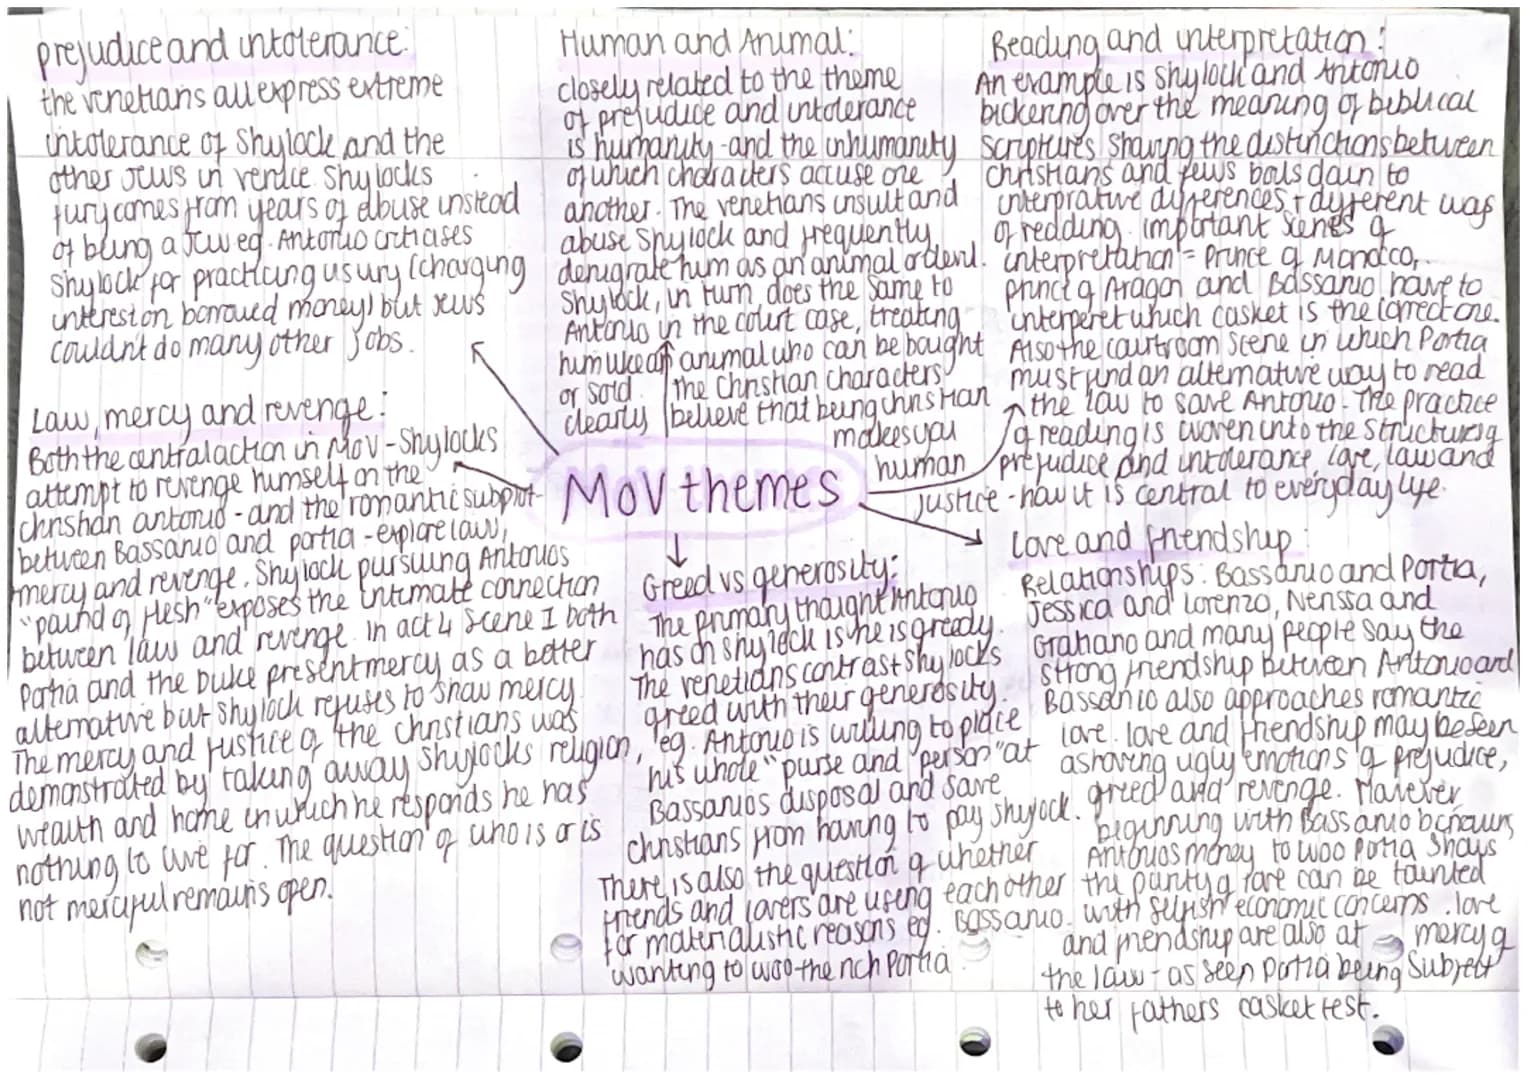 prejudice and intolerance:
the venetians all express extreme
intolerance of Shylock and the
other Jews in venice. Shylocks
fury comes from years of abuse instead
of being a Jew eg. Antonio critiases
Shylock for practicing usury (charging
interest on borrowed money) but Jews
couldn't do many other jobs.
Law, mercy and revenge:
Both the central action in MoV - Shylocks
attempt to revenge himself on the
christian antonio - and the romantic subplot
between Bassanio and portia - explore law,
mercy and revenge. Shylock pursuing Antonios
"pound of flesh" exposes the intimate connection
between law and revenge. In act 4 scene I both
Portia and the Duke present mercy as a better
alternative but Shylock refuses to show mercy.
The mercy and justice of the christians was
demonstrated by taking away Shylocks religion,
wealth and home in which he responds he has
nothing to live for. The question of who is or is
not merciful remains open.
Human and Animal:
closely related to the theme
of prejudice and intolerance
is humanity - and the inhumanity
of which characters accuse one
another. The venetians insult and
abuse Shylock and frequently
denigrate him as an animal or devil.
Shylock, in turn, does the same to
Antonio in the court case, treating
him like an animal who can be bought
or sold. The Christian characters
clearly believe that being christian
makes you
human
MoV themes
Greed vs generosity:
The primary thought Antonio
has on shylock is he is greedy.
The venetians contrast Shylocks
greed with their generosity.
eg. Antonio is willing to place
his whole "purse and person" at
Bassanios disposal and save
christians from having to pay shylock.
There is also the question of whether
friends and lovers are using each other
for materialistic reasons eg. Bassanio
wanting to woo the rich Portia
Reading and interpretation:
An example is Shylock and Antonio
bickering over the meaning of biblical
scriptures. Showing the distinctions between
christians and jews boils down to
interprative differences + different was
of reading. important scenes of
interpretation = Prince of Morocco,
prince of Aragon and Bassanio have to
interperet which casket is the correct one.
Also the courtroom scene in which Portia
must find an alternative way to read
the law to save Antonio. The practice
of reading is woven into the structuring
prejudice and intolerance, love, law and
justice - how it is central to everyday life.
Love and friendship:
Relationships: Bassanio and Portia,
Jessica and Lorenzo, Nerissa and
Gratiano and many people say the
strong friendship between Antonio and
Bassanio also approaches romantic
love. love and friendship may be seen
as having ugly emotions of prejudice,
greed and revenge. However,
beginning with Bassanio
Antonios money to woo Portia shows
the purity of love can be tainted
with selfish economic concerns. love
and friendship are also at mercy of
the law - as seen Portia being subject
to her fathers casket test.